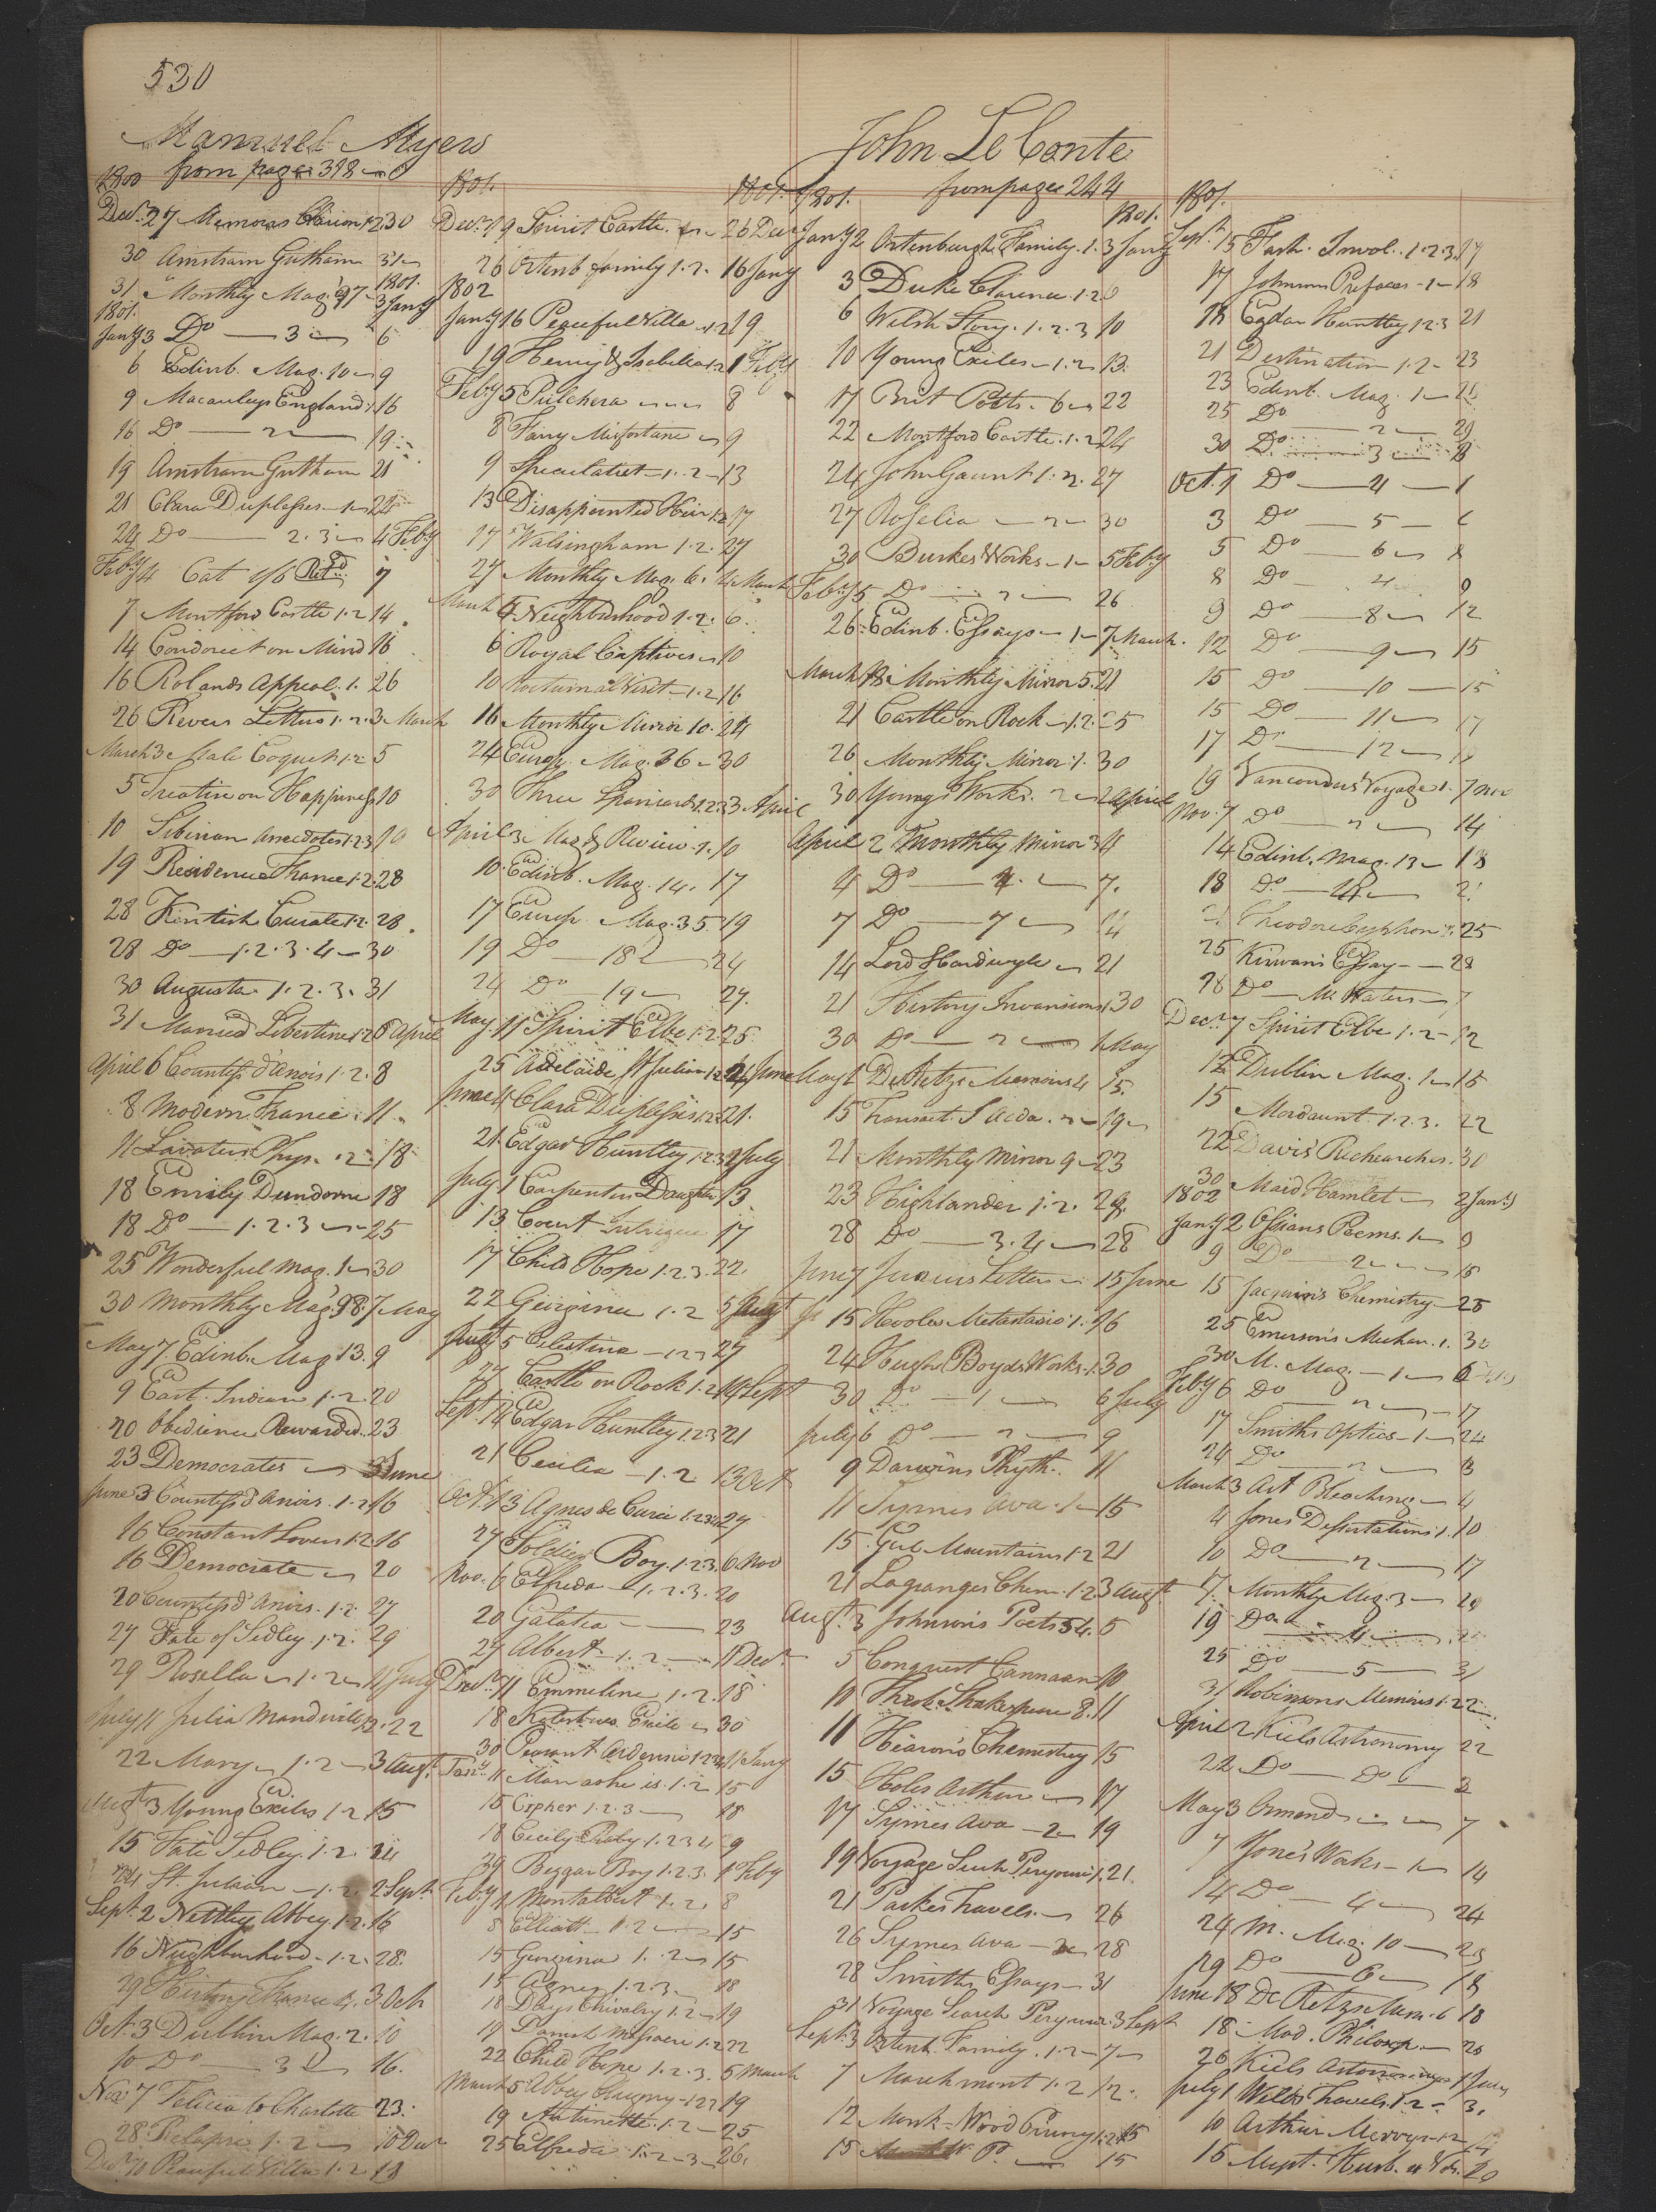 530
Manuel Myers
from page 318
1800
Decr. 27 Memoirs 1.2 30
30 Amstram Gutham 31
31 Monthly Mag. 97 1801. 3 Jany
1801.
Jany 3 Do 3 6
6 Edinb. Mag. 10 9
9 Macauleys England 1. 16
16 Do 2 19
19 Amstram Gutham 21
21 Clara Duplessies 1 24
24 Do 2.3 4 Feby
Feby 4 Cat 1/6 Retd. 7
7 Montford Castle 1.2 14
14 Condorcet on Mind 16
16 Rolands Appeal. 1. 26
26 Letters 1.2. 3 March
March 3 Male Coquet 1.2 5
5 Treatise on Happiness 10
10 Siberian Anecdotes 1.2.3 19
19 Residence France 1.2. 28
28 Kentish Curate 1.2. 28
28 Do 1.2.3.4 30
30 Augusta 1.2.3. 31
31 Married Libertine 1.2 6 April
April 6 Countess d'anois 1.2. 8
8 Modern France 11
11 Lavater Phys. 2 18
18 Emily Dundorne 18
18 Do 1.2.3 25
25 Wonderful Mag. 1 30
30 Monthly Mag. 98. 7 May
May 7 Edinb. Mag. 13. 9
9 East Indian 1.2. 20
20 Obedience Rewarded. 23
23 Democrates 3 June
June 3 Countess d'anois. 1.2 16
16 Constant Lovers 1.2 16
16 Democrate 20
20 Countess d'anois. 1.2. 27
27 Fate of Sedley. 1.2. 29
29 Rosella 1.2 11 July
July 11 Julia Mandville 22
22 Mary 1.2 3 Augt.
Augt. 3 Young Exiles 1.2 15
15 Fate Sedley. 1.2. 24
24 St. Julian 1.2. 2 Sept.
Sept. 2 Nettley Abbey. 1.2. 16
16 Neighbourhood 1.2. 28.
29 History France 3 Oct
Oct. 3 Dublin Mag. 2. 10
10 Do 3 16.
Nov 7 Felicia to Charlotte 23.
28 Relapse 1.2 10 Decr
Decr. 10 Peaceful Villa 1.2 19
1801.
Decr. 19 Spirit Castle 26 Decr
26 Ortenb family 1.2. 16 Jany
1802
Jany 16 Peaceful Villa 1.2 19
19 Henry & Isabella 1.2 1 Feby
Feby 5 Pulchera 8
8 Fanny Misfortune 9
9 Speculator 1.2 13
13 Disappointed Heir 1.2 17
17 Walsingham 1.2. 27
27 Monthly Mag. 6. 4 March
March 4 Neighbourhood 1.2. 6.
6 Royal Captives 10
10 Nocturnal Visit 1.2 16
16 Monthly Mirror 10. 24
24 Europ. Mag. 36 30
30 Three Spaniards 1.2.3 3 April
April 3 Mag & Review. 1. 10
10 Edinb. Mag. 14. 17
17 Europ. Mag. 35. 19
19 Do 18 24
24 Do 19 29.
May 11 Spirit Elbe 1.2. 25
25 Adelaide St Julian 1.2 4 June
June 4 Clara Duplessies 1.2 21.
21. Edgar Huntley 1.2.3 1 July
July 1 Carpenters Daughter 13
13 Count Intrigue 17
17 Child Hope 1.2.3. 22.
22 Georgina 1.2 5 Augt
Augt 5 Celestina 1.2.3 27
27 Castle on Rock 1.2 14 Sept
Sept. 14 Edgar Huntley 1.2.3 21
21 Cecilia 1.2 13 Oct
Oct. 13 Agnes de Curci 1.2.3.4 27
27 Soldier Boy. 1.2.3. 6 Nov
Nov. 6 Elfreda 1.2.3. 20
20 Galatea 23
27 Albert 1.2 11 Decr.
Decr. 11 Emmeline 1.2. 18
18 Exile 30
30 Peasant Ardennes 1.2.3.4 11 Jany
Jany. 11 Man as he is. 1.2 15
15 Cipher 1.2.3 18
18 Cecily Raby 1.2.3.4 29
29 Beggar Boy 1.2.3. 1 Feby
Feby 1 Montalbert 1.2. 8
8 Elliott 1.2 15
15 Georgina 1.2 15
15 Agnes 1.2.3 18
18 Days Chivalry 1.2 19
19 Parish Massacre 1.2 22
22 Child Hope 1.2.3. 5 March
March 5 Abbey Clugny 1.2.3 19
19 Antoinette 1.2 25
25 Elfreda 1.2.3 26.
John Le Conte
from page 244
1801.
Jany 2 Ortenburgh Family. 1. 3 Jany
3 Duke Clarence 1.2 6
6 Welsh Story. 1.2.3 10
10 Young Exiles 1.2 13.
17 Brit Poets. 6 22
22 Montford Castle. 1.2 24
24 John Gaunt 1.2. 27
27 Roselia 2 30
30 Burkes Works 1 5 Feby
Feby 5 Do 2 26
26 Edinb. Essays 1 7 March.
March 18 Monthly Mirror 5. 21
21 Castle on Rock 1.2. 25
26 Monthly Mirror 1. 30
30 Youngs Works. 2 2 April
April 2 Monthly Mirror 3 4
4 Do 4. 7.
7 Do 7 14
14 Lord Hardwyle 21
21 History Invasions 1. 30
30 Do 2 1 May
May 1 De Retzs Memoirs 4 15.
15 Transact. S Acda. 2 19
21 Monthly Mirror 9 23
23 Highlander 1.2. 28.
28 Do 3.4 28
June 7 Junius Letters 15 June
15 Hooles Metastasio 1. 16
24 Hugh Boyds Works. 1. 30
30 Do 1 6 July
July 6 Do 2 9
9 Darwins Phyth. 11
11 Symes Ava. 1 15
15 Gul Mountains 1.2 21
21 Lagranges Chem. 1.2. 3 Augt
Augt. 3 Johnson's Poets 54. 5
5 Conquest Cannaan 10
10 Theob. Shakespeare 8. 11
11 Hearon's Chemistry 15
15 Holes Arthur 17
17 Symes Ava 2 19
19 Voyage Search Peryouse 1. 21.
21 Parkes Travels. 26
26 Symes Ava 28
28 Smiths Essays 31
31 Voyage Search Peryouse. 3 Sept
Sept. 3 Ortenb Family. 1.2 7
7 Marchmont 1.2 12.
12 Monk Wood Priory 1.2 15
15 W. P. 15
1801.
Sept. 15 Fash. Invol. 1.2.3. 17
17 Johnsons Prefaces 1 18
18 Edgar Huntley 1.2.3 21
21 Destination 1.2 23
23 Edinb. Mag. 1 25
25 Do 2 29
30 Do 3 8
Oct. 1 Do 4 1
3 Do 5
5 Do 6 8
8 Do 9
9 Do 8 12
12 Do 9 15
15 Do 10 15
15 Do 11 17
17 Do 12
19 Vancouvers Voyage 1. 7 Nov
Nov. 7 Do 2 14
14 Edinb. Mag. 13 18
18 Do. 14 21
21 Theodore Cyphon 25
25 Kirwan's Essay 28
28 Do M. Waters 7
Decr 7 Spirit Elbe 1.2 12
12 Dublin Mag. 1 15
15 Mordaunt 1.2.3. 22
22 Davis's Reshearches. 30
30 Maid Hamlet 2 Jany
1802
Jany 2 Ossians Poems. 1 9
9 Do 2 15
15 Jacquin's Chemistry 25
25 Emerson's Mechan. 1. 30
30 M. Mag. 1 6 Feby
Feby 6 Do 2 17
17 Smiths Optics 1 24
24 Do 2 3
March 3 Art Bleaching 4
4 Jones Dissertations 1. 10
10 Do 2 17
17. Monthly Mag. 3 20
19 Do 4 25
25 Do 5 31
31 Robinsons Memoirs 1.2 2
April 2 Kiels Astronomy 22
22 Do Do 3
May 3 Ormond 7
7 Jone's Works 1 14
14 Do 4 24
24 M. Mag. 10 29
29 Do 6 18
June 18 De Retzs Mem. 6 18
18 Mod. Philosop. 26
26 Kiels Astronomy 1 July
July 1 Welds Travels 1.2 3.
10 Arthur Mervyn 1.2
15 Myst. Husb. 20